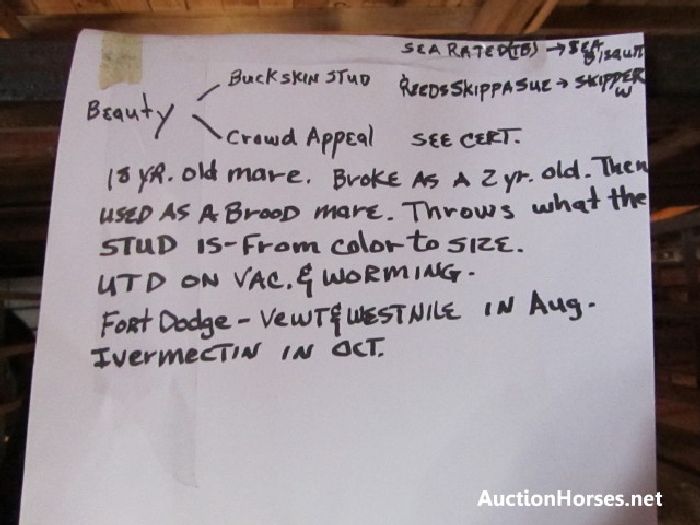 SEA RATED(TB) → SEA BISQUIT
Buckskin Stud ReedsSkippa Sue → Skipper W
Beauty
Crowd Appeal SEE CERT.
18 yr. old mare. Broke As A 2 yr. old. Then
used As A Brood mare. Throws what the
STUD is-From color to SIZE.
UTD ON VAC. & WORMING.
Fort Dodge - VEWT & WEST NILE IN Aug.
IvermecTIN IN OCT.
AuctionHorses.net